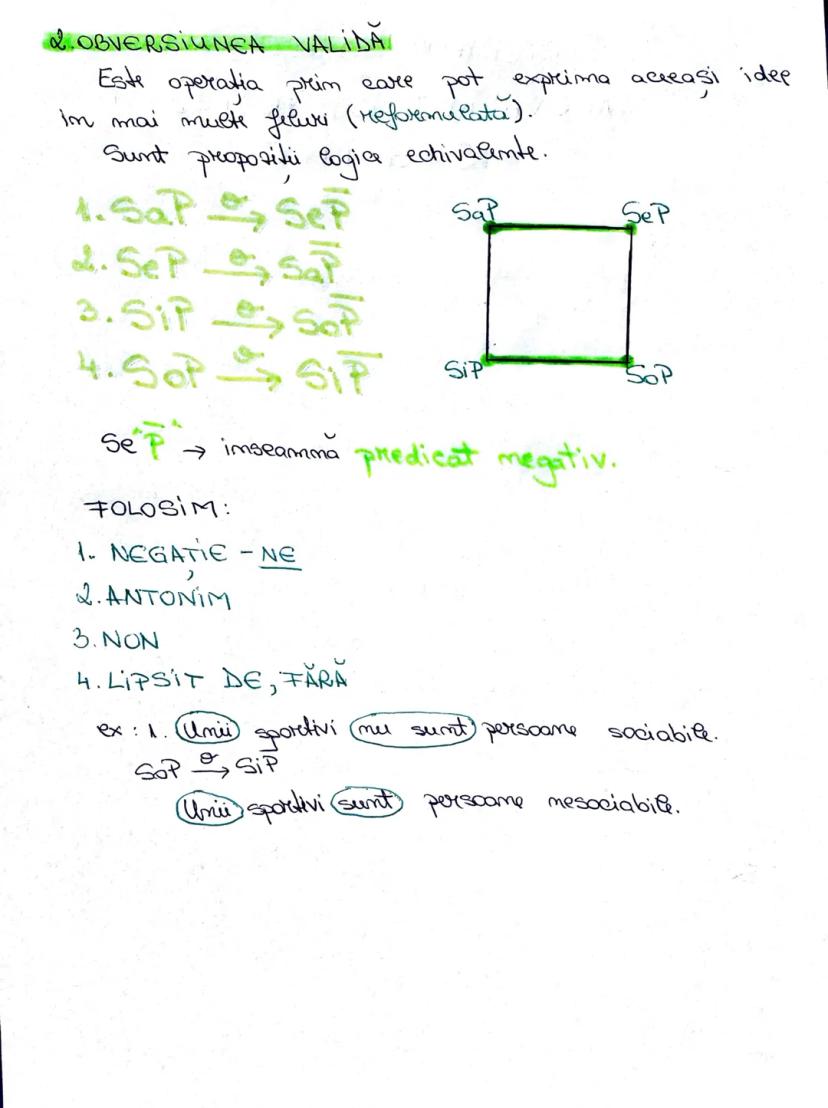 2. OBVERSIUNEA VALIDĂ
Este operația prin care pot exprima aceeași idee
în mai multe feluri (reformulată).
Sunt propoziții logice echivalente.
1. SaP →ᵒ SeP̅
2. SeP →ᵒ SaP̅
3. SiP →ᵒ SoP̅
4. SoP →ᵒ SiP̅
SaP SeP
SiP SoP
Se"P̅" → înseamnă predicat negativ.
FOLOSIM:
1. NEGAȚIE - NE
2. ANTONIM
3. NON
4. LIPSIT DE, FĂRĂ
ex: 1. Unii sportivi nu sunt persoane sociabile.
SoP →ᵒ SiP̅
Unii sportivi sunt persoane nesociabile.